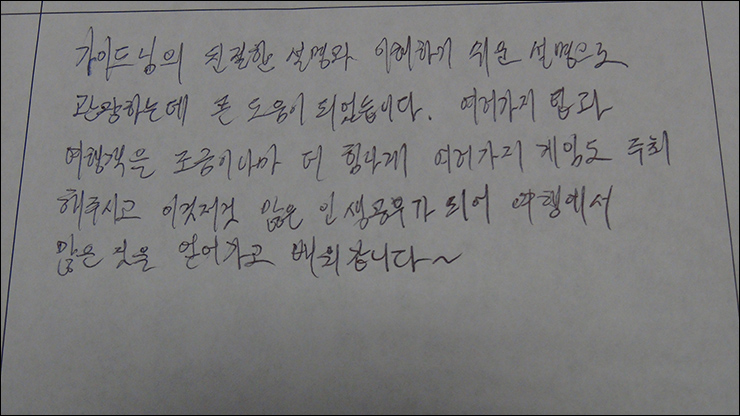 가이드님의 친절한 설명과 이해하기 쉬운 설명으로
관광하는데 큰 도움이 되었습니다. 여러가지 팁과
여행객을 조금이나마 더 힘나게 여러가지 게임도 주최
해주시고 이것저것 많은 인생공부가 되어 여행에서
많은 것을 얻어가고 배워갑니다~